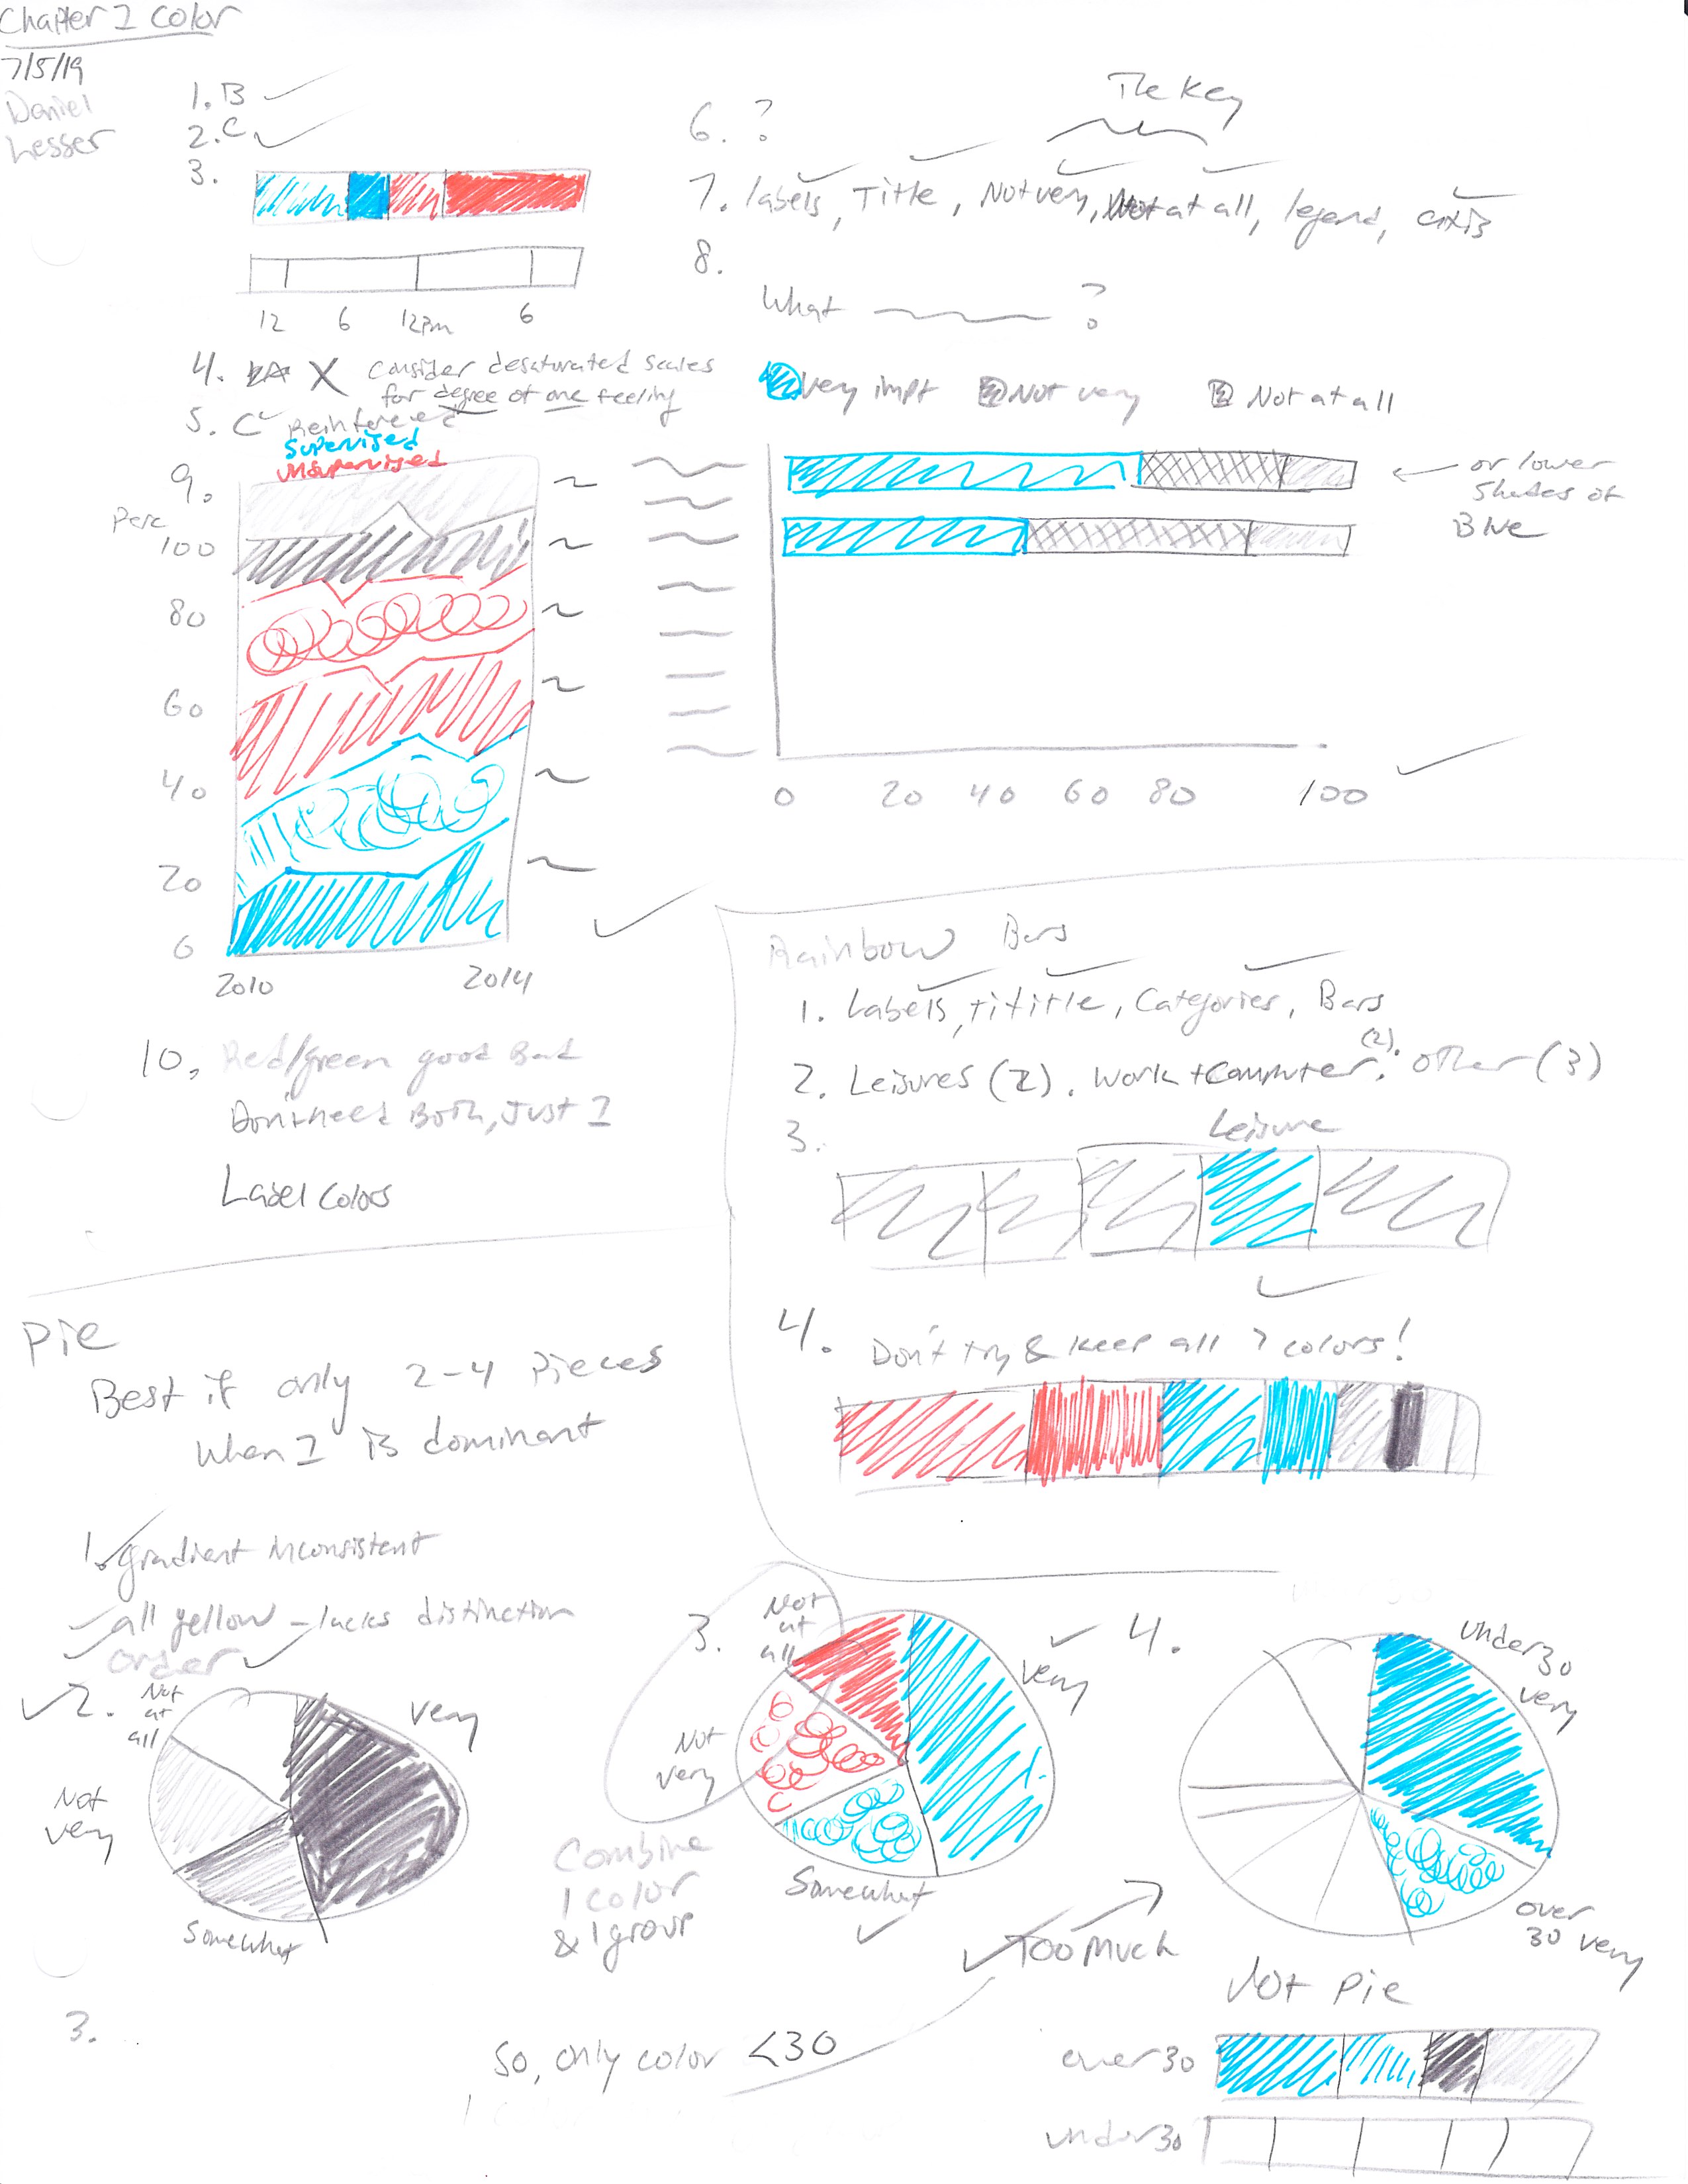 Chapter 1 Color
7/5/19
Daniel
Lesser
1. B
2. C
3.
12 6 12pm 6
4. X Consider desaturated scales
for degree of one feeling
5. C Reinforced
6. ?
The Key
7. labels, Title, Not very, Not at all, legend, axis
8.
What ?
Very impt Not very Not at all
or lower
shades of
Blue
0 20 40 60 80 100
Supervised
Unsupervised
9.
Perc
100
80
60
40
20
0
2010 2014
10, Red/green good Bad
Don't need Both, Just 1
Label Colors
Rainbow Bars
1. Labels, tititle, Categories, Bars
2. Leisures (2). Work + Computer (2). Other (3)
3.
Leisure
4. Don't try & keep all 7 colors!
Pie
Best if only 2-4 Pieces
When 1 is dominant
1. gradient inconsistent
all yellow - lacks distinction
order
2.
Not
at
all
Very
Not
very
Somewhat
3.
Not
at
all
Very
Not
very
Somewhat
Combine
1 color
& 1 group
4.
Under 30
very
over
30 very
Too Much
Not Pie
3.
So, only color <30
over 30
under 30